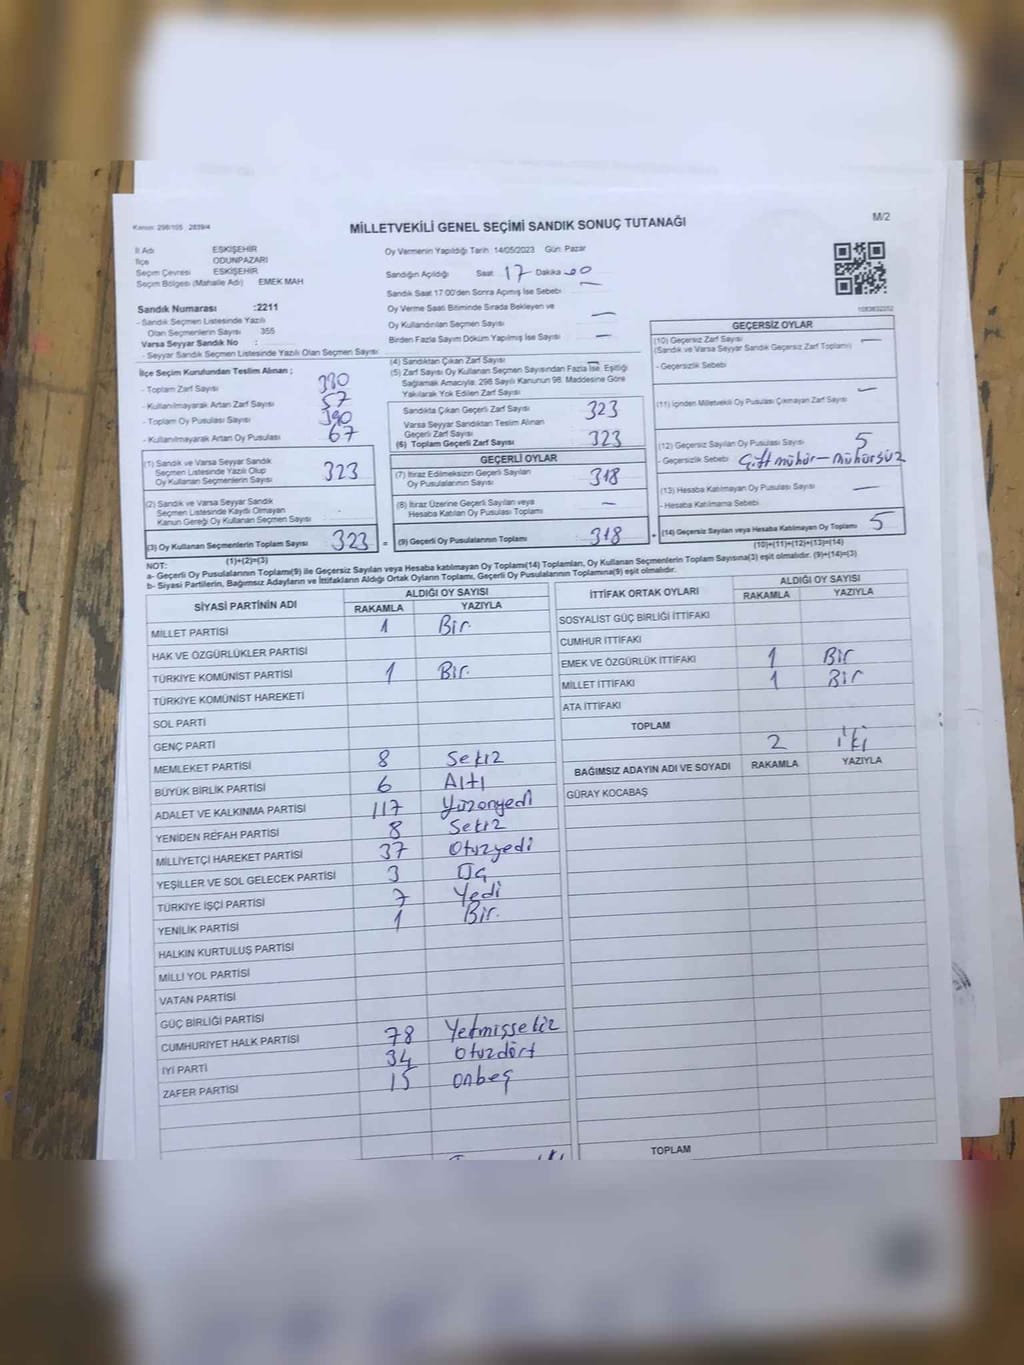 Kanun: 298/105 2839/4
MİLLETVEKİLİ GENEL SEÇİMİ SANDIK SONUÇ TUTANAĞI
M/2
İl Adı ESKİŞEHİR
İlçe ODUNPAZARI
Seçim Çevresi ESKİŞEHİR
Seçim Bölgesi (Mahalle Adı) EMEK MAH
Oy Vermenin Yapıldığı Tarih: 14/05/2023 Gün: Pazar
Sandığın Açıldığı Saat 17 Dakika 00
Sandık Saat 17:00'den Sonra Açımış İse Sebebi —
Oy Verme Saati Bitiminde Sırada Bekleyen ve
Oy Kullandırılan Seçmen Sayısı —
Birden Fazla Sayım Döküm Yapılmış İse Sayısı —
Sandık Numarası :2211
- Sandık Seçmen Listesinde Yazılı
Olan Seçmenlerin Sayısı 355
Varsa Seyyar Sandık No :
- Seyyar Sandık Seçmen Listesinde Yazılı Olan Seçmen Sayısı:
İlçe Seçim Kurulundan Teslim Alınan ;
- Toplam Zarf Sayısı 380
- Kullanılmayarak Artan Zarf Sayısı 57
- Toplam Oy Pusulası Sayısı 390
- Kullanılmayarak Artan Oy Pusulası 67
(1) Sandık ve Varsa Seyyar Sandık
Seçmen Listesinde Yazılı Olup
Oy Kullanan Seçmenlerin Sayısı 323
(2) Sandık ve Varsa Seyyar Sandık
Seçmen Listesinde Kaydı Olmayan
Kanun Gereği Oy Kullanan Seçmen Sayısı
(3) Oy Kullanan Seçmenlerin Toplam Sayısı 323 =
(1)+(2)=(3)
(4) Sandıktan Çıkan Zarf Sayısı
(5) Zarf Sayısı Oy Kullanan Seçmen Sayısından Fazla İse, Eşitliği
Sağlamak Amacıyla; 298 Sayılı Kanunun 98. Maddesine Göre
Yakılarak Yok Edilen Zarf Sayısı
Sandıkta Çıkan Geçerli Zarf Sayısı 323
Varsa Seyyar Sandıktan Teslim Alınan
Geçerli Zarf Sayısı
(6) Toplam Geçerli Zarf Sayısı 323
GEÇERLİ OYLAR
(7) İtiraz Edilmeksizin Geçerli Sayılan
Oy Pusulalarının Sayısı 318
(8) İtiraz Üzerine Geçerli Sayılan veya
Hesaba Katılan Oy Pusulası Toplamı —
(9) Geçerli Oy Pusulalarının Toplamı 318 +
GEÇERSİZ OYLAR
(10) Geçersiz Zarf Sayısı —
(Sandık ve Varsa Seyyar Sandık Geçersiz Zarf Toplamı)
- Geçersizlik Sebebi
(11) İçinden Milletvekili Oy Pusulası Çıkmayan Zarf Sayısı —
(12) Geçersiz Sayılan Oy Pusulası Sayısı 5
- Geçersizlik Sebebi Çift mühür - Mühürsüz
(13) Hesaba Katılmayan Oy Pusulası Sayısı —
- Hesaba Katılmama Sebebi
(14) Geçersiz Sayılan veya Hesaba Katılmayan Oy Toplamı 5
(10)+(11)+(12)+(13)=(14)
NOT:
a- Geçerli Oy Pusulalarının Toplamı(9) ile Geçersiz Sayılan veya Hesaba katılmayan Oy Toplamı(14) Toplamları, Oy Kullanan Seçmenlerin Toplam Sayısına(3) eşit olmalıdır. (9)+(14)=(3)
b- Siyasi Partilerin, Bağımsız Adayların ve İttifakların Aldığı Ortak Oyların Toplamı, Geçerli Oy Pusulalarının Toplamına(9) eşit olmalıdır.
SİYASİ PARTİNİN ADI ALDIĞI OY SAYISI
RAKAMLA YAZIYLA
MİLLET PARTİSİ 1 Bir.
HAK VE ÖZGÜRLÜKLER PARTİSİ
TÜRKİYE KOMÜNİST PARTİSİ 1 Bir.
TÜRKİYE KOMÜNİST HAREKETİ
SOL PARTİ
GENÇ PARTİ
MEMLEKET PARTİSİ 8 Sekiz
BÜYÜK BİRLİK PARTİSİ 6 Altı
ADALET VE KALKINMA PARTİSİ 117 Yüzonyedi
YENİDEN REFAH PARTİSİ 8 Sekiz
MİLLİYETÇİ HAREKET PARTİSİ 37 Otuzyedi
YEŞİLLER VE SOL GELECEK PARTİSİ 3 Üç
TÜRKİYE İŞÇİ PARTİSİ 7 Yedi
YENİLİK PARTİSİ 1 Bir.
HALKIN KURTULUŞ PARTİSİ
MİLLİ YOL PARTİSİ
VATAN PARTİSİ
GÜÇ BİRLİĞİ PARTİSİ
CUMHURİYET HALK PARTİSİ 78 Yetmişsekiz
İYİ PARTİ 34 Otuzdört
ZAFER PARTİSİ 15 onbeş
İTTİFAK ORTAK OYLARI ALDIĞI OY SAYISI
RAKAMLA YAZIYLA
SOSYALİST GÜÇ BİRLİĞİ İTTİFAKI
CUMHUR İTTİFAKI
EMEK VE ÖZGÜRLÜK İTTİFAKI 1 Bir
MİLLET İTTİFAKI 1 Bir
ATA İTTİFAKI
TOPLAM 2 iki
BAĞIMSIZ ADAYIN ADI VE SOYADI RAKAMLA YAZIYLA
GÜRAY KOCABAŞ
TOPLAM